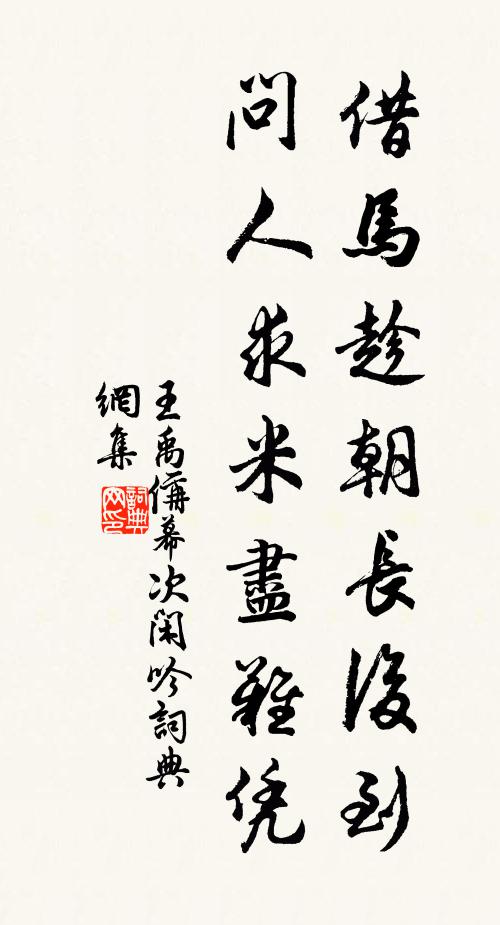 借馬趁朝長後到
問人求米盡難凭
王禹偁幕次閑吟詞典
網集
詞典
网印